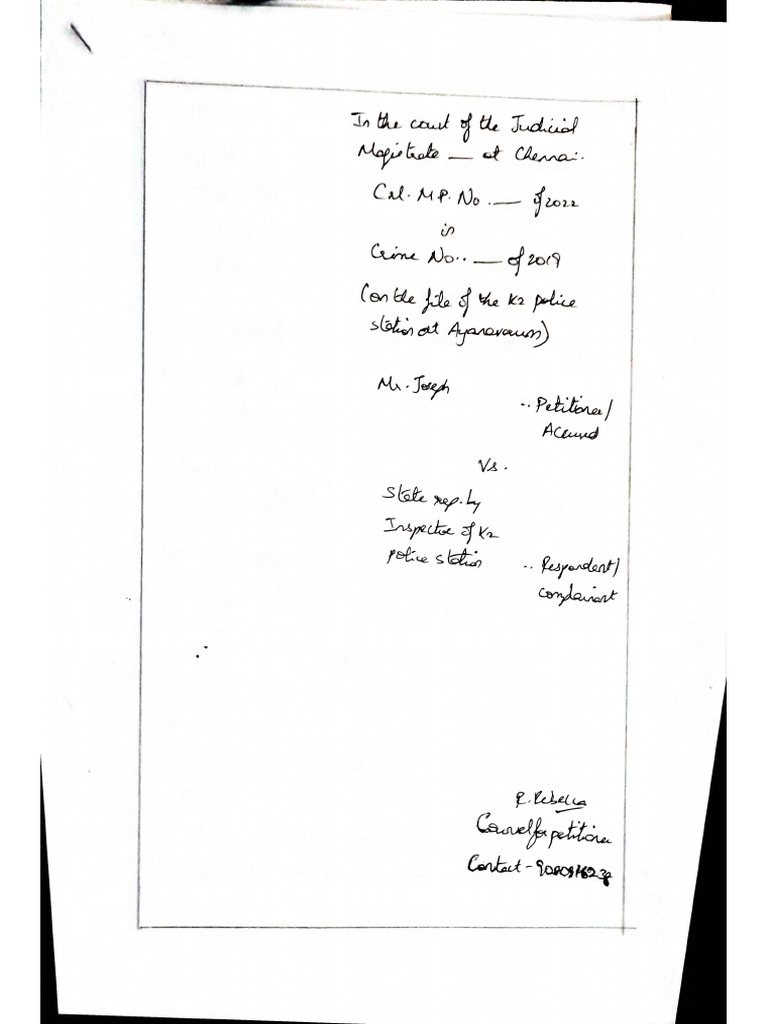 In the court of the Judicial
Magistrate — at Chennai.
Crl. M.P. No. — of 2022
in
Crime No.. — of 2019
(on the file of the K2 police
station at Ayanavaram)
Mr. Joseph
.. Petitioner/
Accused
Vs.
State rep. by
Inspector of K2
police station
.. Respondent/
Complainant
R. Rebecca
Counsel for petitioner
Contact -